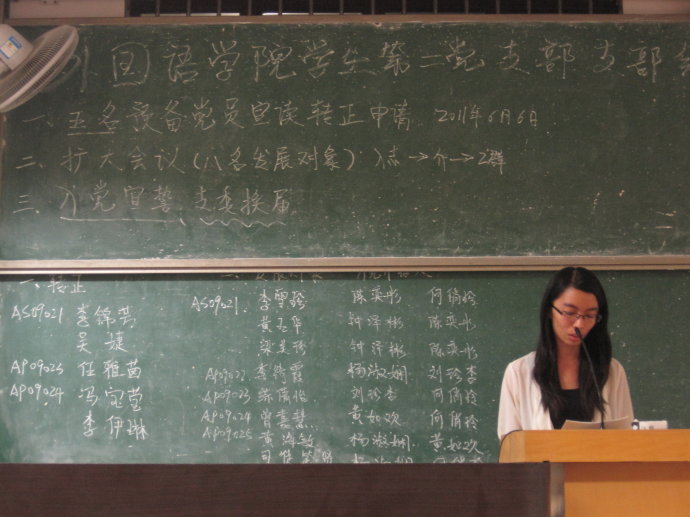 外国语学院学生第二党支部支部会
一、五名预备党员宣读转正申请 2011年6月6日
二、扩大会议(八名发展对象) 志→介→群
三、入党宣誓、支委换届
一、转正
AS09021 李锦芸
吴婕
AP09023 任雅茵
AP09024 冯宝莹
李伊琳
AS09021 李雪玲 陈奕彤 何俏玲
黄玉华 钟泽彬 陈奕彤
梁美珍 钟泽彬 陈奕彤
AP09022 李绮霞 杨淑娴 刘珍李
AP09023 刘珍李 何俏玲
AP09024 曾嘉慧 黄如欢 何俏玲
AP09025 黄海敏 杨淑娴 黄如欢